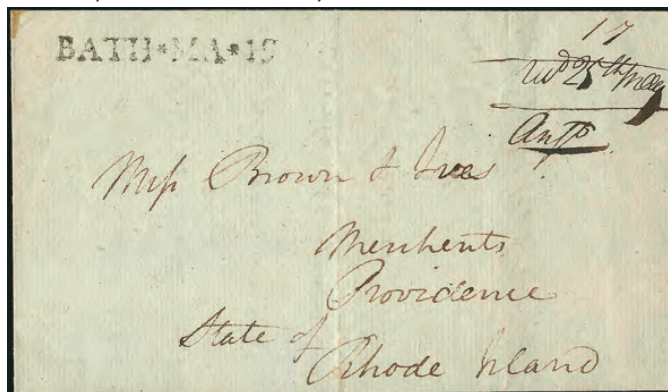 BATH*MA*19
17
recd 25th May
Ansd
Messrs Brown & Ives
Merchents
Providence
State of
Rhode Island